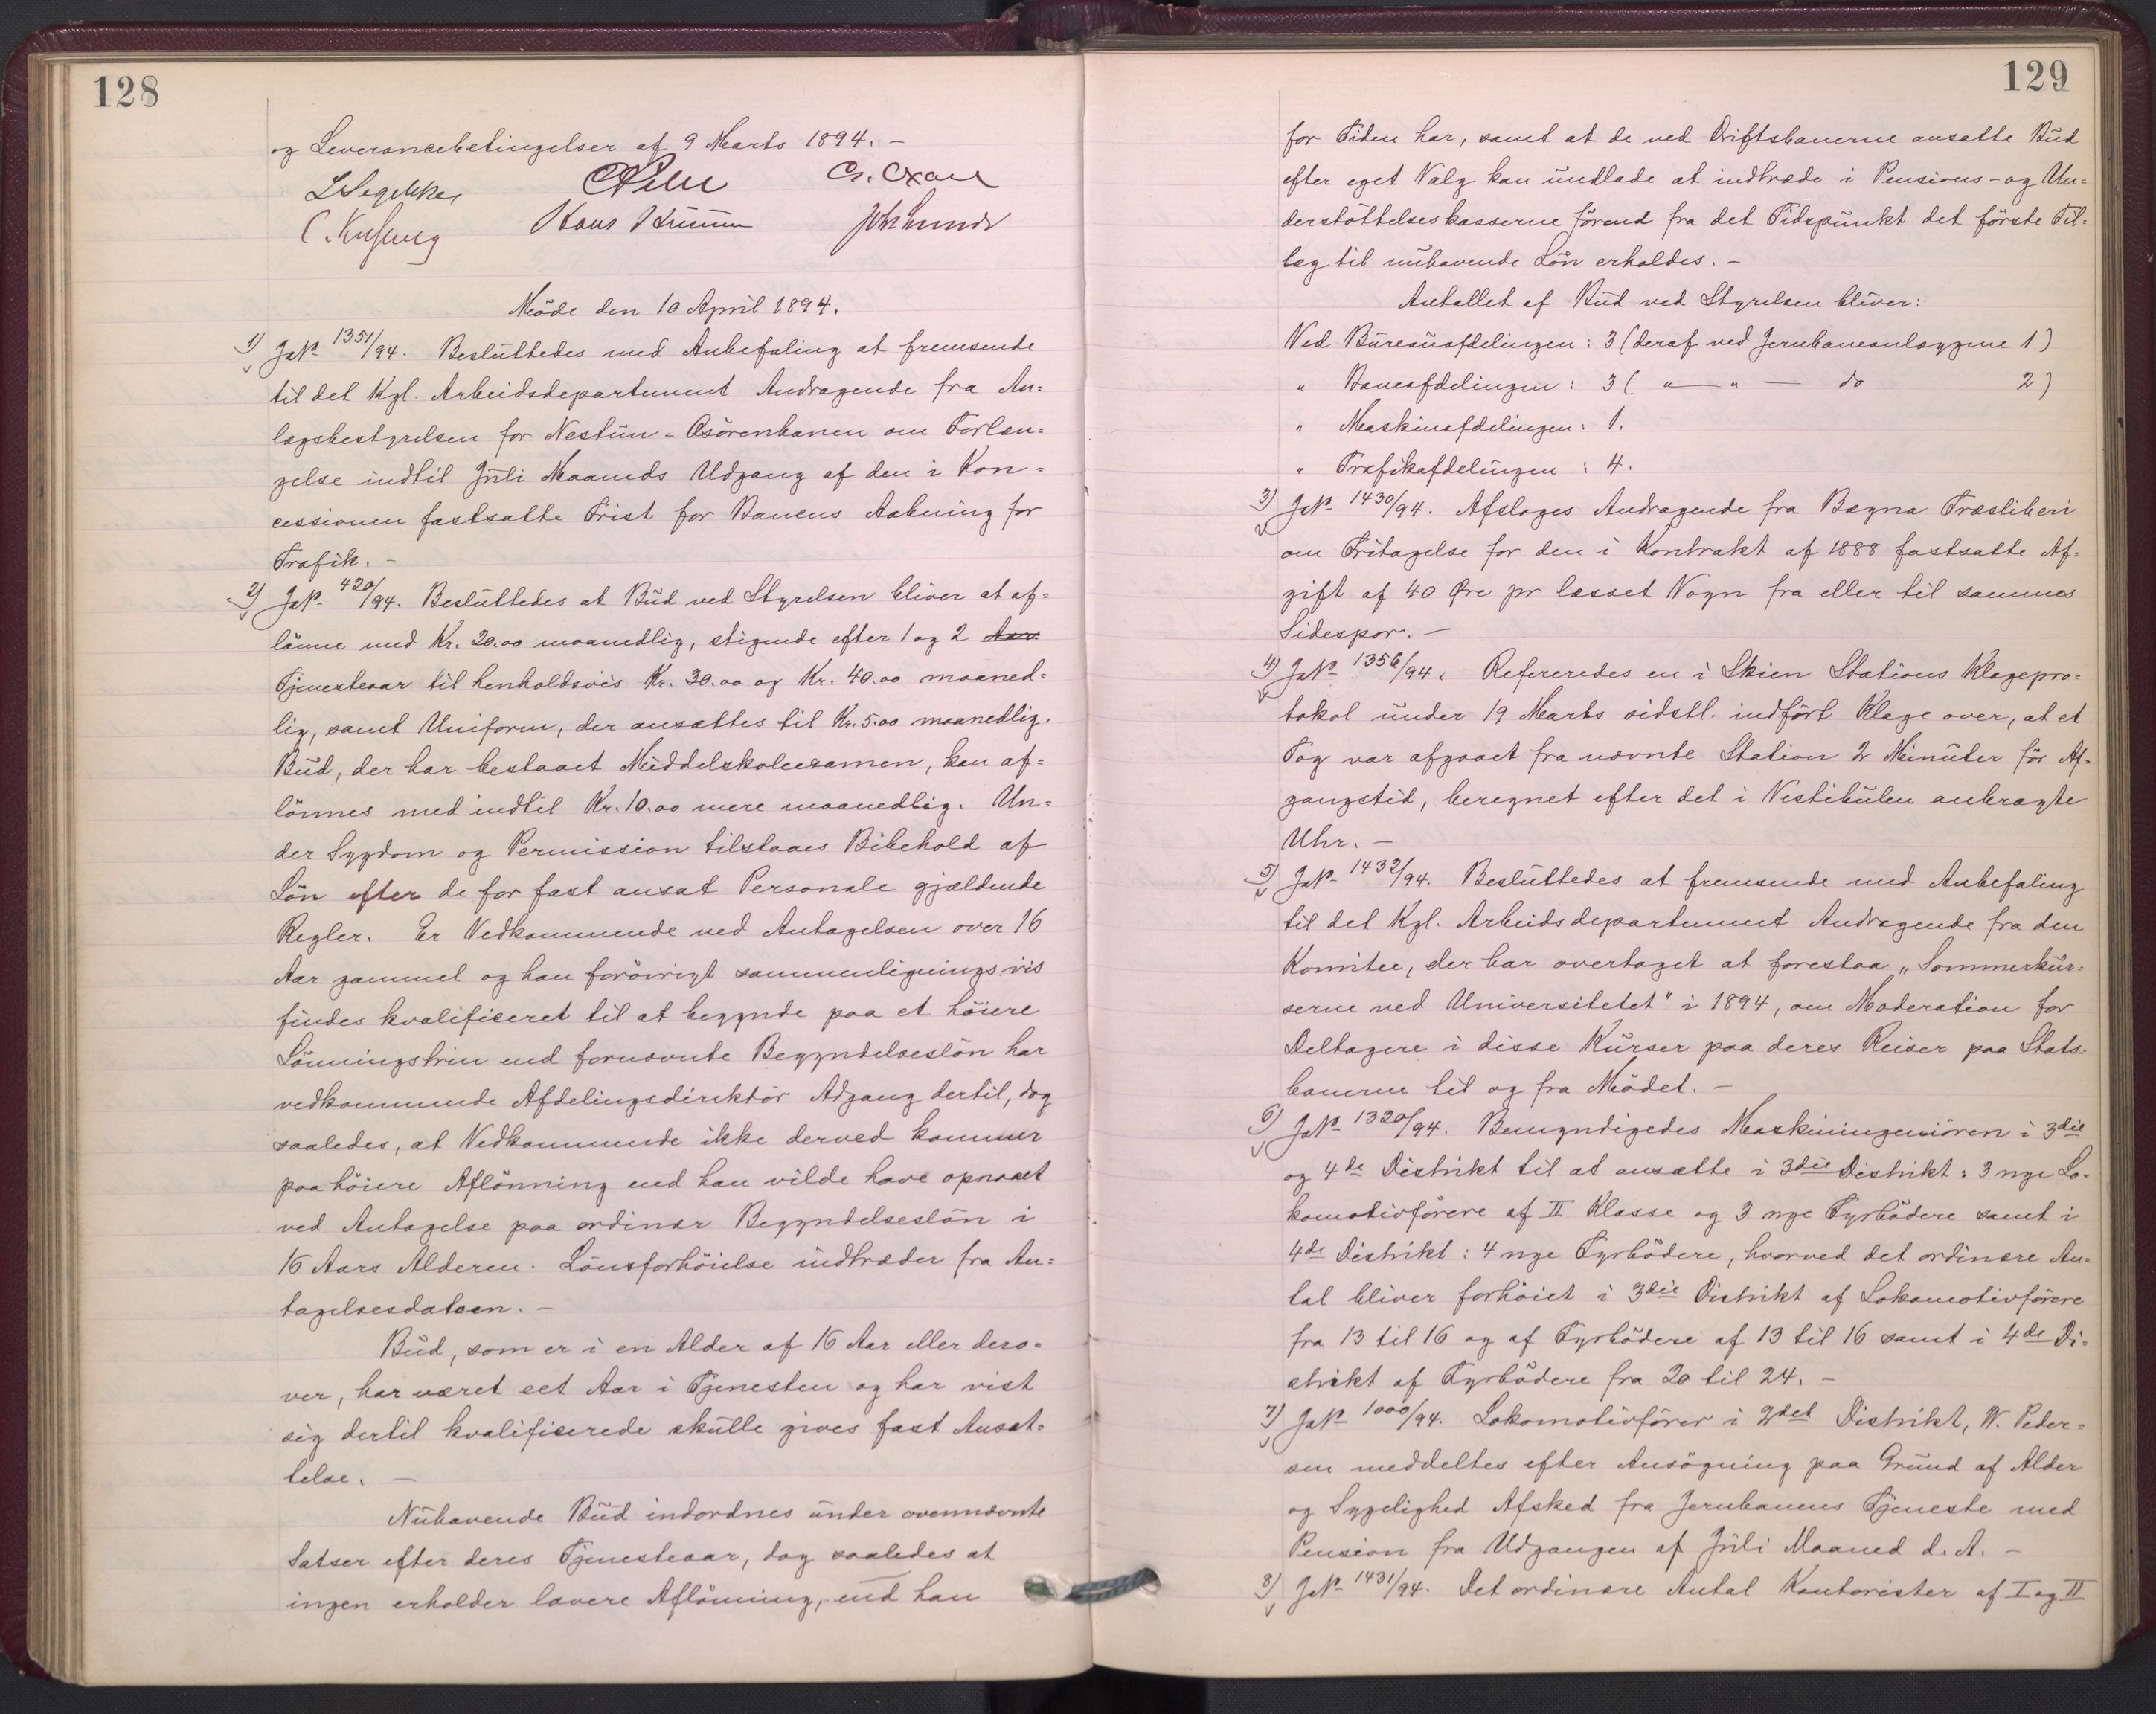 128
og Leverancebetingelser af 9 Marts 1894. –
Hans Krumm
Möde den 10 April 1894.
1) JN° 1351/94. Besluttedes med Anbefaling at fremsende
til det Kgl. Arbeidsdepartement Andragende fra An=
lægsbestyrelsen for Nestun-Osörenbanen om Forlæn=
gelse indtil Juli Maaneds Udgang af den i Kon=
cessionen fastsatte Frist for Banens Aabning for
Trafik. –
2) JN° 420/94. Besluttedes at Bud ved Styrelsen bliver at af=
lönne med Kr. 20.00 maanedlig, stigende efter 1 og 2 Aar
Tjenesteaar til henholdsvis Kr. 30.00 og Kr. 40.00 maaned=
lig, samt Uniform, der ansættes til Kr. 5.00 maanedlig.
Bud, der har bestaaet Middelskoleexamen, kan af=
lönnes med indtil Kr. 10.00 mere maanedlig. Un=
der Sygdom og Permission tilstaaes Bibehold af
Lön efter de for fast ansat Personale gjældende
Regler. Er Vedkommende ved Antagelsen over 16
Aar gammel og han forövrigt sammenligningsvis
findes kvalificeret til at begynde paa et höiere
Lönningstrin end fornævnte Begyndelseslön har
vedkommende Afdelingsdirektör Adgang dertil, dog
saaledes, at Vedkommende ikke derved kommer
paa höiere Aflönning end han vilde have opnaaet
ved Antagelse paa ordinær Begyndelseslön i
16 Aars Alderen. Lönsforhöielse indtræder fra An=
tagelsesdatoen. –
Bud, som er i en Alder af 16 Aar eller dero=
ver, har været eet Aar i Tjenesten og har vist
sig dertil kvalificerede skulle gives fast Ansæt=
telse. –
Nuhavende Bud indordnes under ovennævnte
Satser efter deres Tjenesteaar, dog saaledes at
ingen erholder lavere Aflönning, end han
129
for Tiden har, samt at de ved Driftsbanerne ansatte Bud
efter eget Valg kan undlade at indtræde i Pensions- og Un=
derstöttelseskasserne förend fra det Tidspunkt det förste Til=
læg til nuhavende Lön erholdes. –
Antallet af Bud ved Styrelsen bliver:
Ved Bureauafdelingen: 3 (deraf ved Jernbaneanlæggene 1)
" Baneafdelingen: 3 ( " — " — do 2)
" Maskinafdelingen: 1.
" Trafikafdelingen: 4.
3) JN° 1430/94. Afslages Andragende fra Bægna Træsliberi
om Fritagelse for den i Kontrakt af 1888 fastsatte Af=
gift af 40 Øre pr læsset Vogn fra eller til sammes
Sidespor. –
4) JN° 1356/94. Refereredes en i Skien Stations Klagepro=
tokol under 19 Marts sidstl. indfört Klage over, at et
Tog var afgaaet fra nævnte Station 2 Minuter för Af=
gangstid, beregnet efter det i Vestibulen anbragte
Uhr. –
5) JN° 1432/94. Besluttedes at fremsende med Anbefaling
til det Kgl. Arbeidsdepartement Andragende fra den
Komitee, der har overtaget at forestaa „Sommerkur=
serne ved Universitetet" i 1894, om Moderation for
Deltagere i disse Kurser paa deres Reiser paa Stats=
banerne til og fra Mödet. –
6) JN° 1320/94. Bemyndigedes Maskiningeniören i 3die
og 4de Distrikt til at ansætte i 3die Distrikt: 3 nye Lo=
komotivförere af II Klasse og 3 nye Fyrbödere samt i
4de Distrikt: 4 nye Fyrbödere, hvorved det ordinære An=
tal bliver forhöiet i 3die Distrikt af Lokomotivförere
fra 13 til 16 og af Fyrbödere af 13 til 16 samt i 4de Di=
strikt af Fyrbödere fra 20 til 24. –
7) JN° 1000/94. Lokomotivförer i 2det Distrikt, W. Peder=
sen meddeltes efter Ansögning paa Grund af Alder
og Sygelighed Afsked fra Jernbanens Tjeneste med
Pension fra Udgangen af Juli Maaned d. A. –
8) JN° 1431/94. Det ordinære Antal Kontorister af I og II